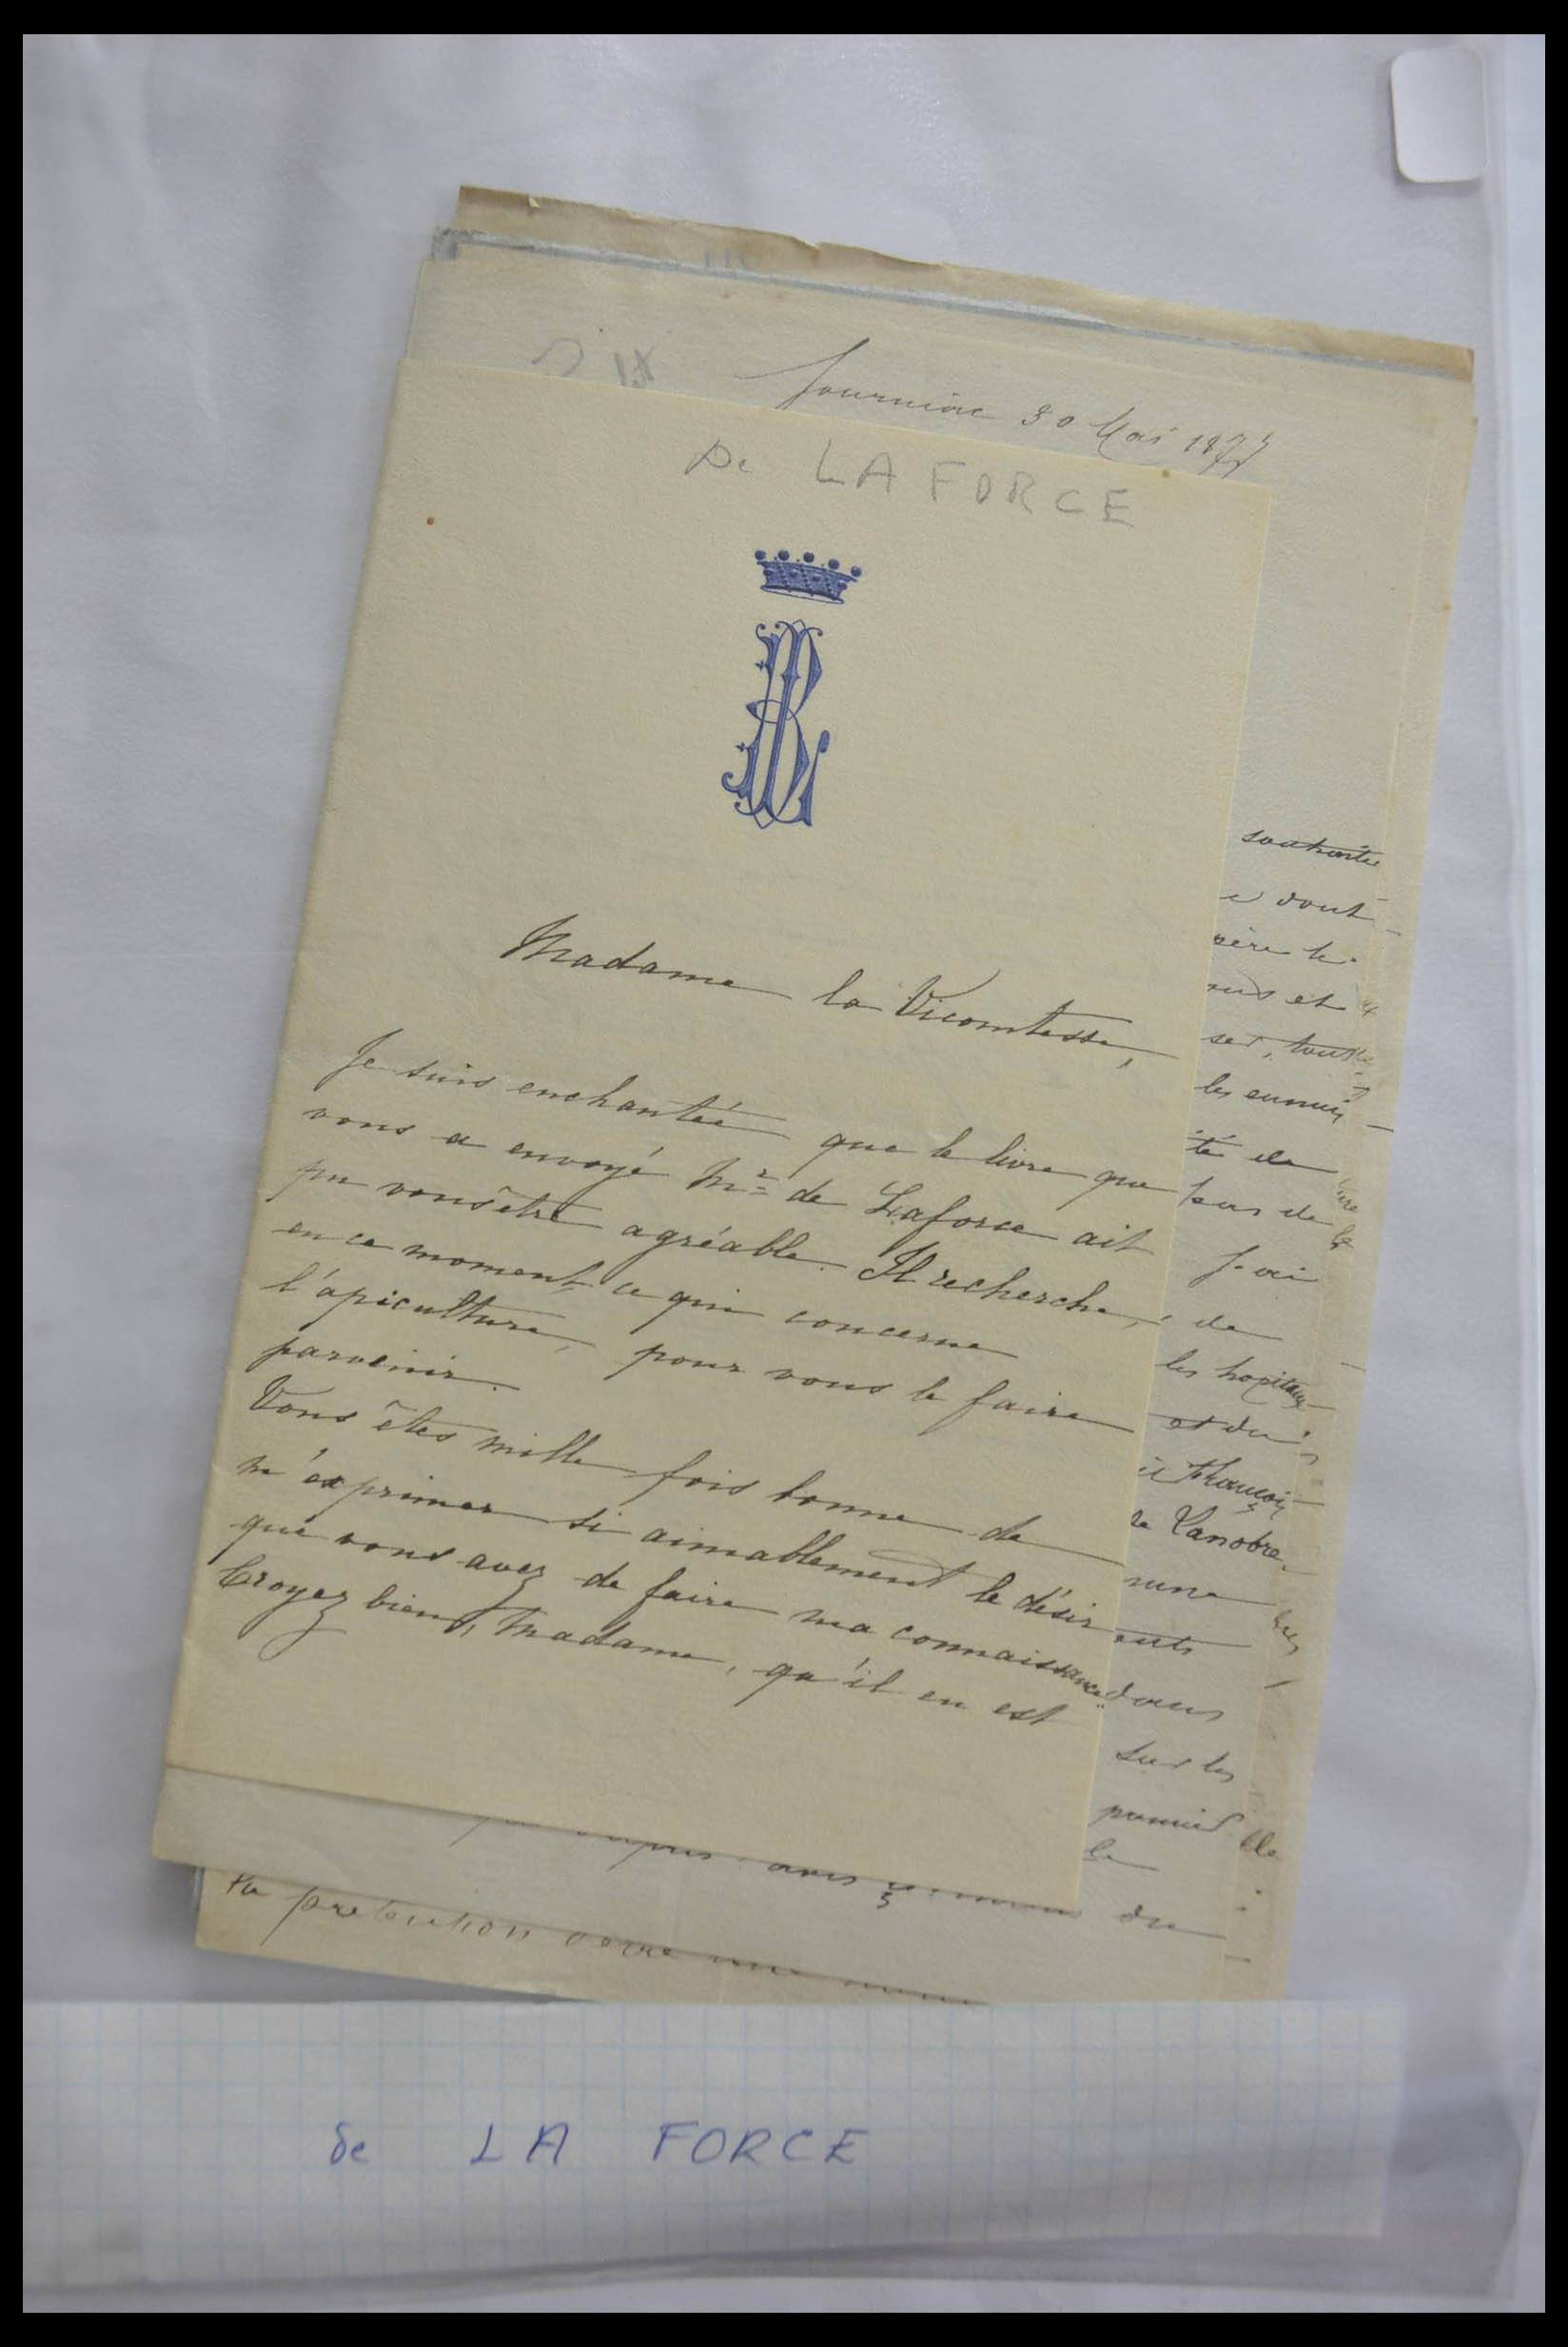 30 Mai 187
De LA FORCE
Madame la Vicomtesse,
Je suis enchantée que le livre que
vous a envoyé Mr de Laforce ait
pu vous être agréable. Il recherche,
en ce moment, ce qui concerne
l'apiculture, pour vous le faire
parvenir.
Vous êtes mille fois bonne de
m'exprimer si aimablement le désir
que vous avez de faire ma connaissance.
Croyez bien, Madame, qu'il en est
souhaitée
dont
père le
et
tout
les ennuis
de
pas de
J'ai
de
les hopitaux
et du
de Canobre
dans
sur les
premier
le
du
la prétention
de LA FORCE